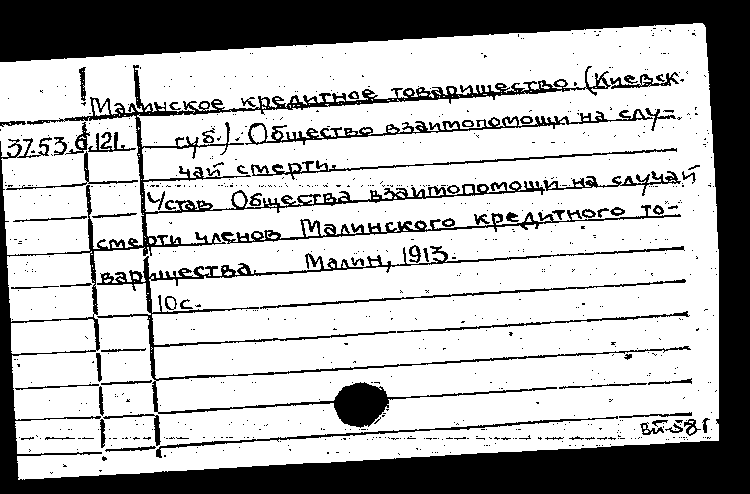 Малинское кредитное товарищество. (Киевск.
37.53.6.121. губ.). Общество взаимопомощи на слу-
чай смерти.
Устав Общества взаимопомощи на случай
смерти членов Малинского кредитного то-
варищества. Малин, 1913.
10с.